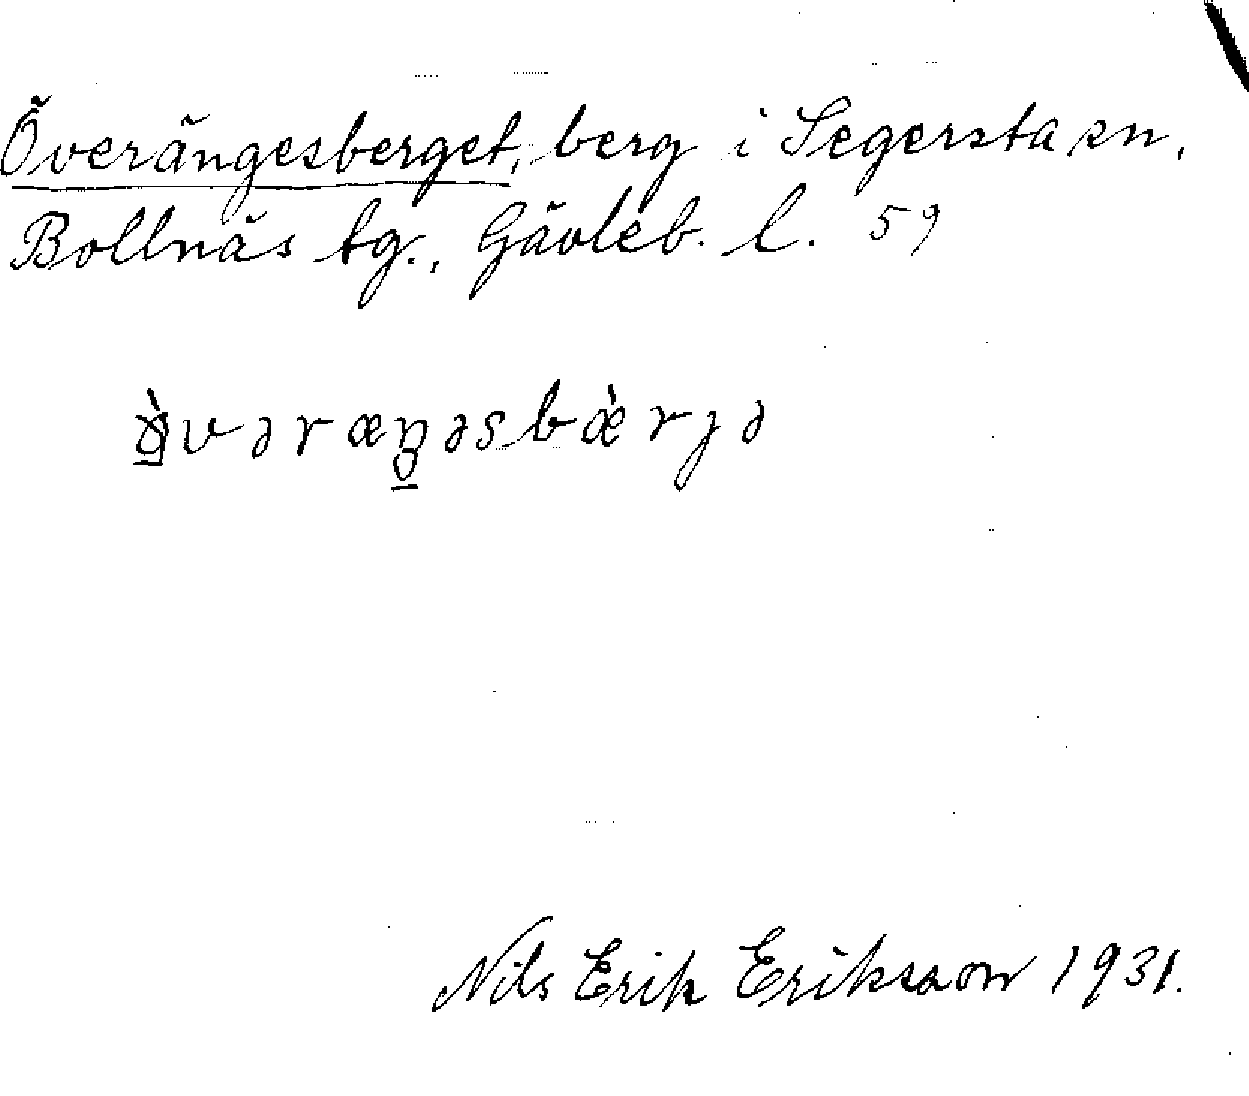 Överängesberget, berg i Segersta sn,
Bollnäs tg., Gävleb. l. 59
vəræŋəsbæ̀rjə
Nils Erik Eriksson 1931.